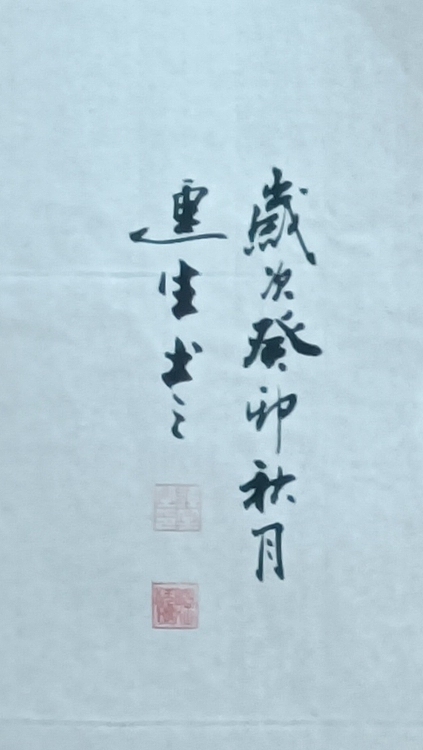 歲次癸卯秋月
生书之